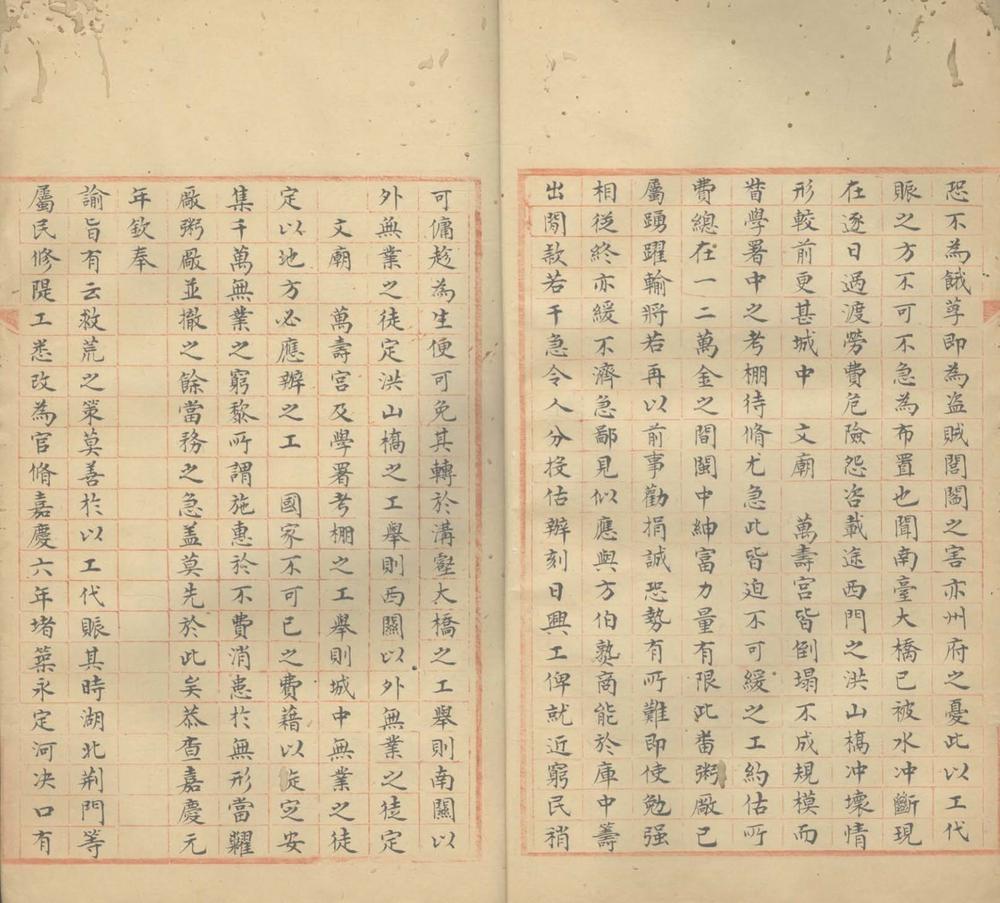 恐不為餓莩即為盗賊閭閻之害亦州府之憂此以工代
賑之方不可不急為布置也聞南臺大橋已被水冲斷現
在逐日過渡勞費危險怨咨載途西門之洪山橋冲壞情
形較前更甚城中　文廟　萬壽宮皆倒塌不成規模而
昔學署中之考棚待脩尤急此皆迫不可緩之工約估所
費總在一二萬金之間閩中紳富力量有限此畨粥厰已
屬踴躍輸將若再以前事勸捐誠恐勢有所難即使勉强
相從終亦緩不濟急鄙見似應與方伯熟商能於庫中籌
出閒欵若干急令人分投估辦刻日興工俾就近窮民稍
可傭趁為生便可免其轉於溝壑大橋之工舉則南關以
外無業之徒定洪山橋之工舉則西關以外無業之徒定
文廟　萬壽宮及學署考棚之工舉則城中無業之徒
定以地方必應辦之工　國家不可已之費藉以安
集千萬無業之窮黎所謂施惠於不費消患於無形當糶
厰粥厰並撤之餘當務之急盖莫先於此矣恭查嘉慶元
年欽奉
諭旨有云救荒之策莫善於以工代賑其時湖北荆門等
屬民修隄工悉改為官脩嘉慶六年堵築永定河决口有